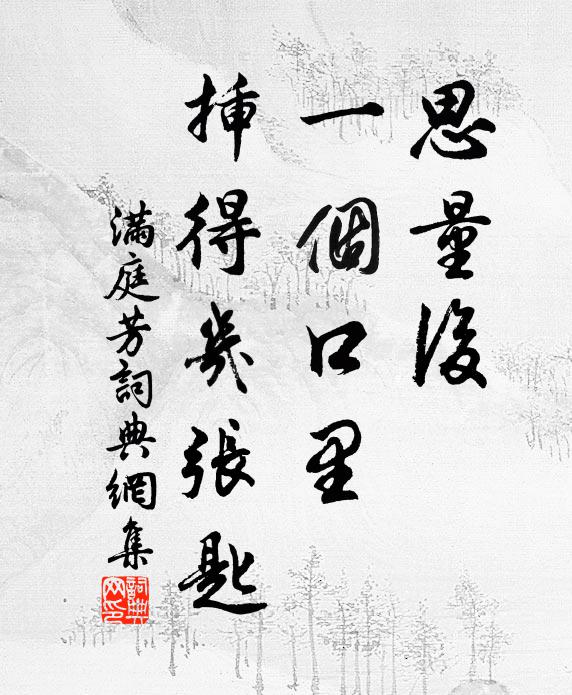 思量後
一個口里
挿得幾張匙
滿庭芳詞典網集
詞典
网印